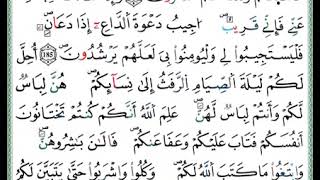 عَنِّي فَإِنِّي قَرِيبٌ ۖ أُجِيبُ دَعْوَةَ الدَّاعِ إِذَا دَعَانِ ۖ
فَلْيَسْتَجِيبُوا لِي وَلْيُومِنُوا بِي لَعَلَّهُمْ يَرْشُدُونَ ١٨٥ أُحِلَّ
لَكُمْ لَيْلَةَ الصِّيَامِ الرَّفَثُ إِلَىٰ نِسَآئِكُمْ ۖ هُنَّ لِبَاسٌ
لَّكُمْ وَأَنتُمْ لِبَاسٌ لَّهُنَّ ۖ عَلِمَ اللَّهُ أَنَّكُمْ كُنتُمْ تَخْتَانُونَ
أَنفُسَكُمْ فَتَابَ عَلَيْكُمْ وَعَفَا عَنكُمْ ۖ فَالَـٰنَ بَاشِرُوهُنَّ
وَابْتَغُوا مَا كَتَبَ اللَّهُ لَكُمْ ۖ وَكُلُوا وَاشْرَبُوا حَتَّىٰ يَتَبَيَّنَ لَكُمُ